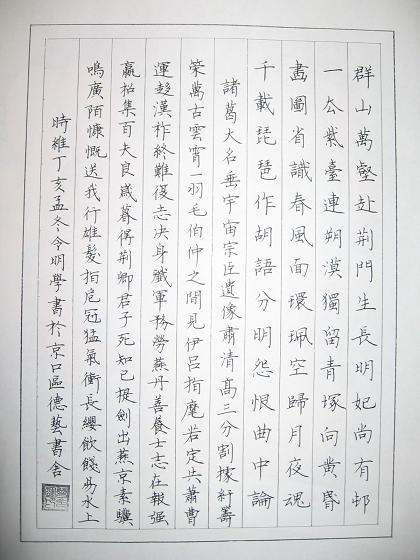 群山萬壑赴荊門生長明妃尚有邨
一去紫臺連朔漠獨留青塚向黄昏
畫圖省識春風面環珮空歸月夜魂
千載琵琶作胡語分明怨恨曲中論
諸葛大名垂宇宙宗臣遺像肅清髙三分割據紆籌
策萬古雲霄一羽毛伯仲之間見伊呂指麾若定失蕭曹
運移漢祚終難復志決身殲軍務勞燕丹善養士志在報强
嬴招集百夫良歲暮得荊卿君子死知己提劍出燕京素驥
鳴廣陌慷慨送我行雄髮指危冠猛氣衝長纓飲餞易水上
時維丁亥孟冬令明學書於京口區德藝書舍